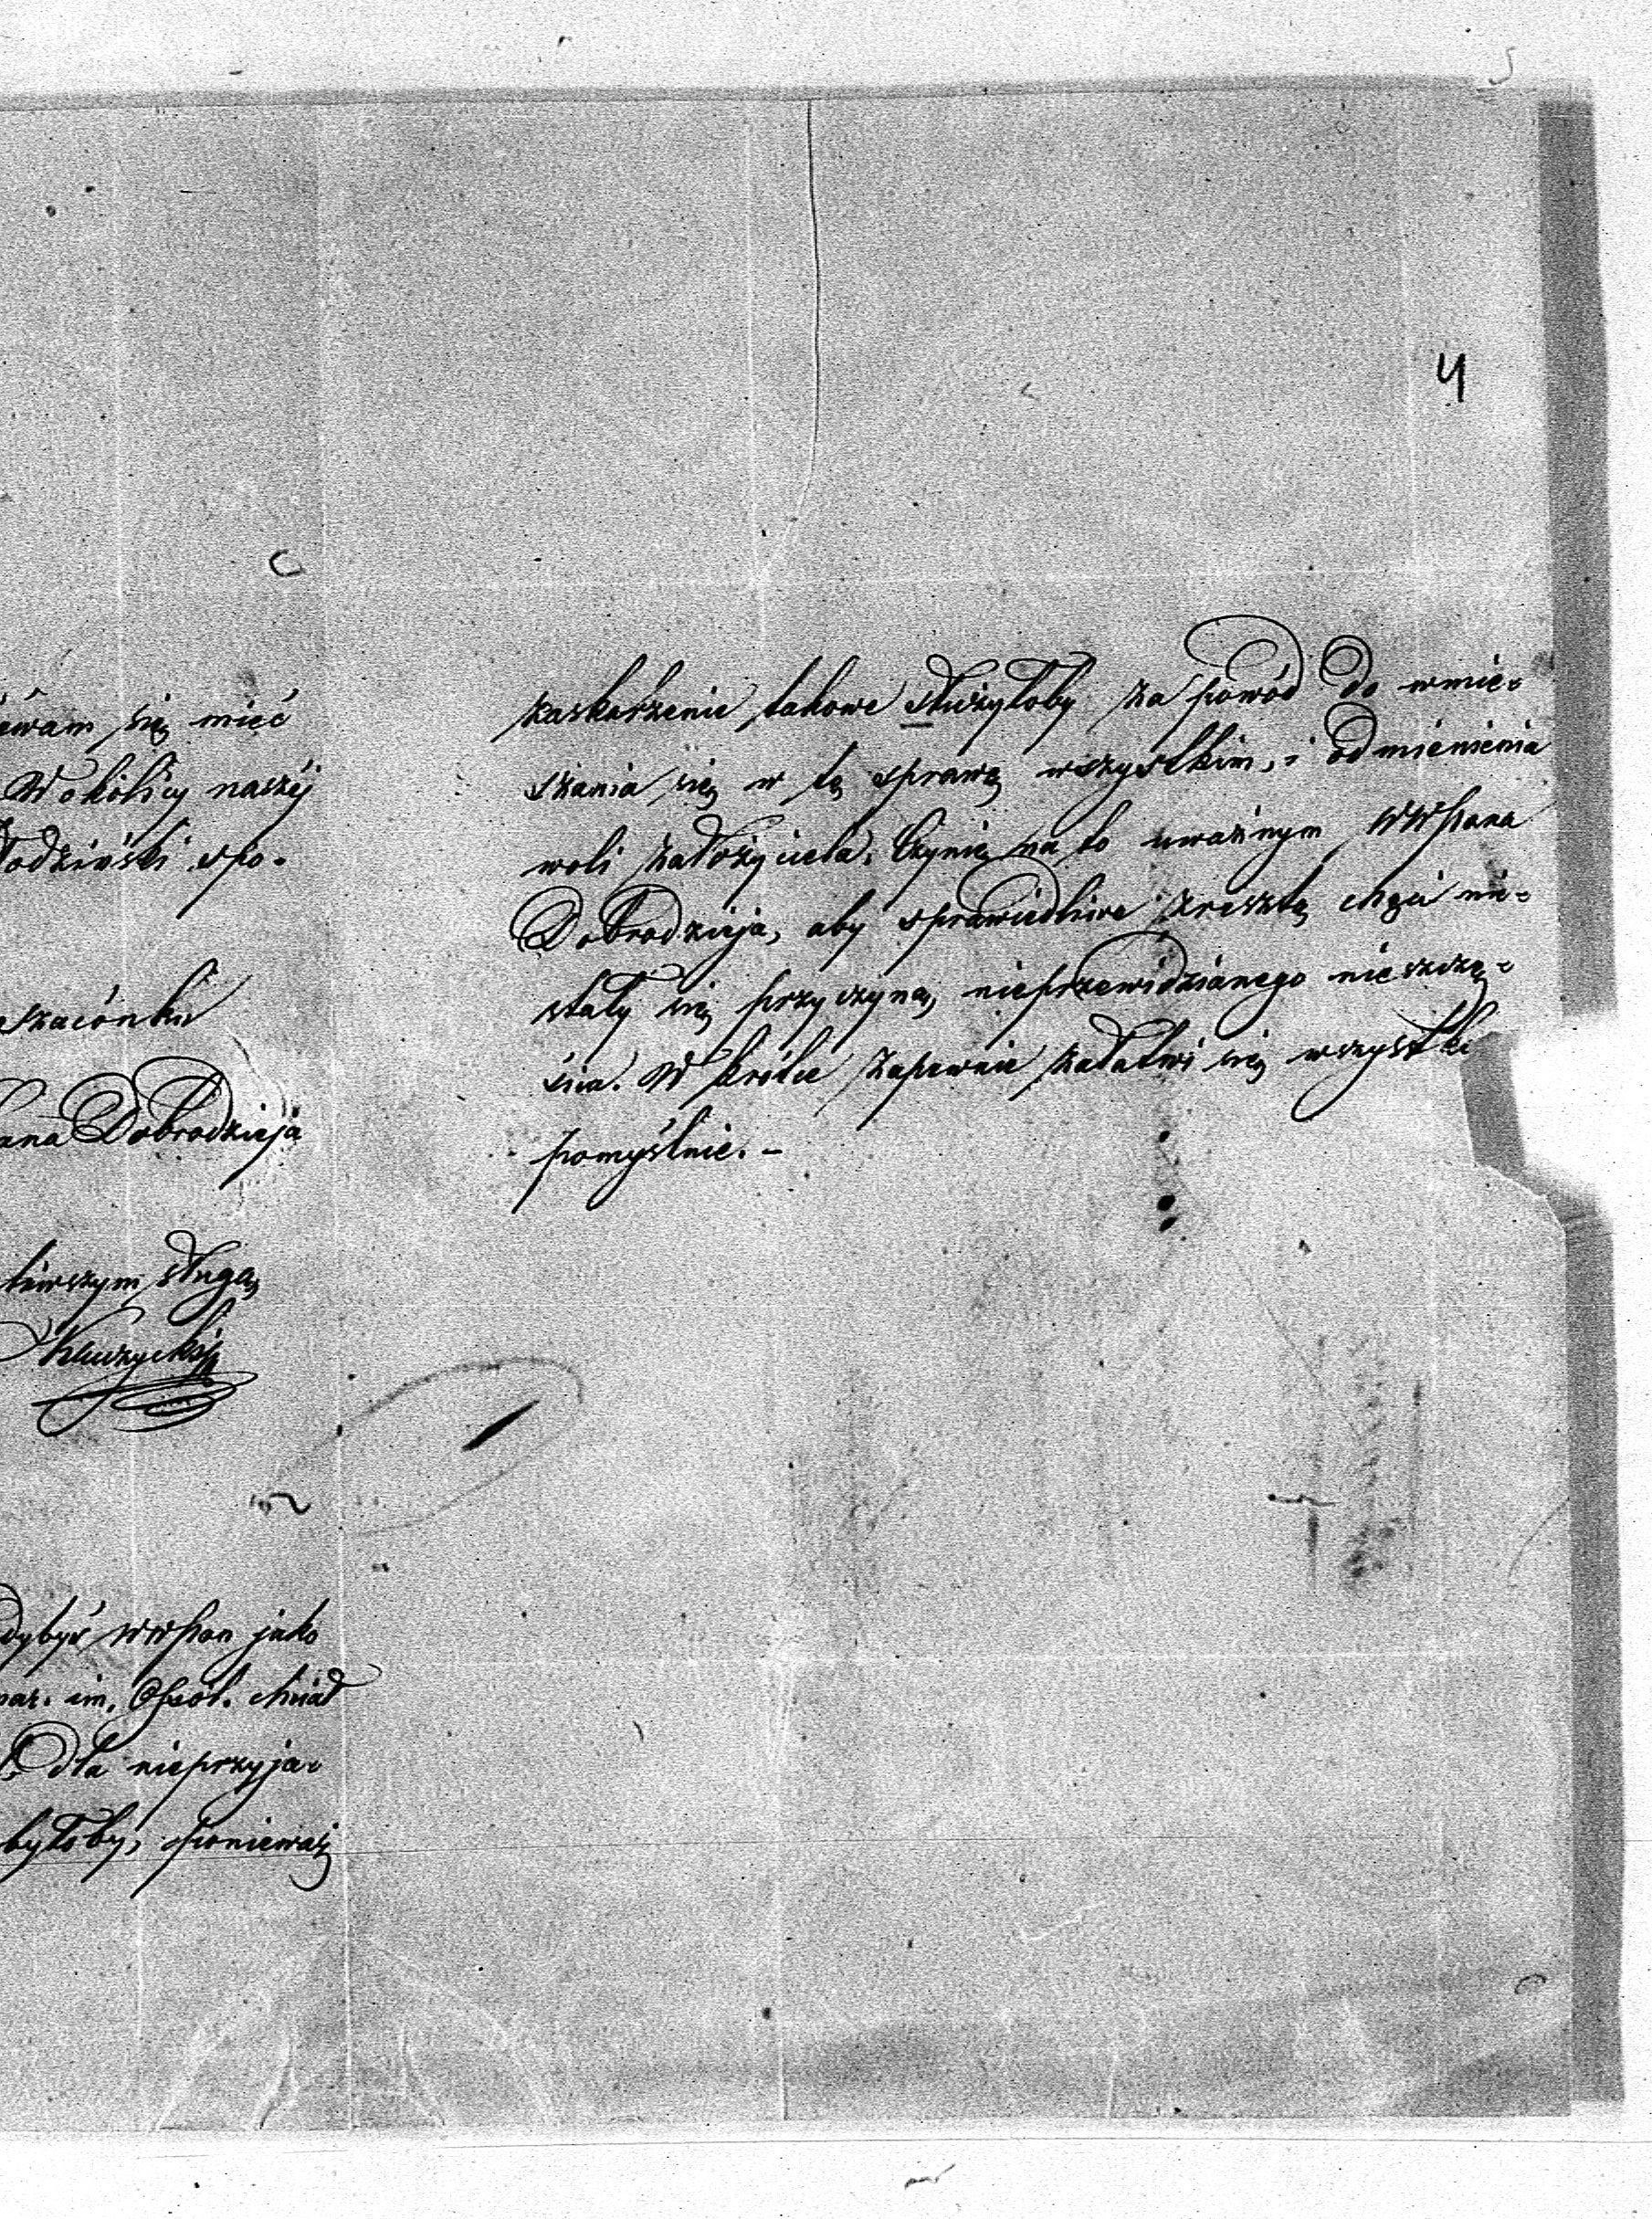 4
ewam się mieć
W okolicy naszéj
łodziński spo-
szacónku
ana Dobrodzieja
sługą
Kluczycki
dybyś WWPan jako
im. Ossol. chciał
dla nieprzyja-
byłoby, ponieważ
zaskarżenie takowe służyłoby za powód do wmie-
szania się w tę sprawę wszystkim, i odmienienia
woli założyciela. Czynię na to uważnym WWPana
Dobrodzieja, aby sprawiedliwe zresztą chęci nie-
stały się przyczyną nieprzewidzianego nieszczę-
ścia. W krótce zapewnie załatwi się wszystko
pomyślnie. -